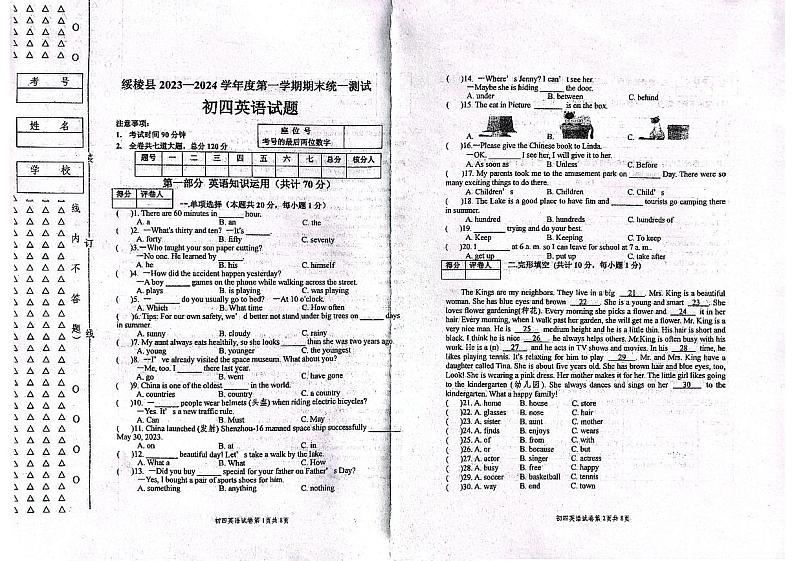 考 号
姓 名
学 校
装
订
线
线
内
不
答
题
绥棱县 2023—2024 学年度第一学期期末统一测试
初四英语试题
注意事项:
1. 考试时间 90 分钟
2. 全卷共七道大题，总分 120 分
座 位 号
考号的最后两位数字
题号 一 二 三 四 五 六 七 总分 核分人
得分
第一部分 英语知识运用（共计 70 分）
得分 评卷人
一.单项选择（本题共 20 分，每小题 1 分）
( )1. There are 60 minutes in ______ hour.
A. a B. an C. the
( )2. —What's thirty and ten? —It's ______.
A. forty B. fifty C. seventy
( )3.—Who taught your son paper cutting?
—No one. He learned by ______.
A. he B. his C. himself
( )4. —How did the accident happen yesterday?
—A boy ______ games on the phone while walking across the street.
A. plays B. is playing C. was playing
( )5. — ______ do you usually go to bed? —At 10 o'clock.
A. Which B. What time C. How often
( )6. Tips: For our safety, we'd better not stand under big trees on ______ days
in summer.
A. sunny B. cloudy C. rainy
( )7. My aunt always eats healthily, so she looks ______ than she was two years ago.
A. young B. younger C. the youngest
( )8. —I've already visited the space museum. What about you?
—Me, too. I ______ there last year.
A. go B. went C. have gone
( )9. China is one of the oldest ______ in the world.
A. countries B. country C. a country
( )10. — ______ people wear helmets (头盔) when riding electric bicycles?
—Yes. It's a new traffic rule.
A. Can B. Must C. May
( )11. China launched (发射) Shenzhou-16 manned space ship successfully ______
May 30, 2023.
A. on B. at C. in
( )12. ______ beautiful day! Let's take a walk by the lake.
A. What a B. What C. How
( )13. —Did you buy ______ special for your father on Father's Day?
—Yes, I bought a pair of sports shoes for him.
A. something B. anything C. nothing
初四英语试卷第 1 页共 8 页
( )14. —Where's Jenny? I can't see her.
—Maybe she is hiding ______ the door.
A. under B. between C. behind
( )15. The cat in Picture ______ is on the box.
A. B. C.
( )16.—Please give the Chinese book to Linda.
—OK, ______ I see her, I will give it to her.
A. As soon as B. Unless C. Before
( )17. My parents took me to the amusement park on ______ Day. There were so
many exciting things to do there.
A. Children's B. Children C. Child's
( )18. The Lake is a good place to have fun and ______ tourists go camping there
in summer.
A. hundred B. hundreds C. hundreds of
( )19. ______ trying and do your best.
A. Keep B. Keeping C. To keep
( )20. I ______ at 6 a. m. so I can leave for school at 7 a. m..
A. get up B. put up C. take after
得分 评卷人
二.完形填空 (共计 10 分，每小题 1 分)
The Kings are my neighbors. They live in a big __21__. Mrs. King is a beautiful
woman. She has blue eyes and brown __22__. She is a young and smart __23__. She
loves flower gardening(种花). Every morning she picks a flower and __24__ it in her
hair. Every morning, when I walk past her garden, she will get me a flower. Mr. King is a
very nice man. He is __25__ medium height and he is a little thin. His hair is short and
black. I think he is nice __26__ he always helps others. Mr.King is often busy with his
work. He is a (n) __27__, and he acts in TV shows and movies. In his __28__ time, he
likes playing tennis. It's relaxing for him to play __29__. Mr. and Mrs. King have a
daughter called Tina. She is about five years old. She has brown hair and blue eyes, too,
Look! She is wearing a pink dress. Her mother makes it for her. The little girl likes going
to the kindergarten (幼儿园). She always dances and sings on her __30__ to the
kindergarten. What a happy family!
( )21. A. home B. house C. store
( )22. A. glasses B. nose C. hair
( )23. A. sister B. aunt C. mother
( )24. A. finds B. enjoys C. wears
( )25. A. of B. from C. with
( )26. A. or B. because C. but
( )27. A. actor B. singer C. actress
( )28. A. busy B. free C. happy
( )29. A. soccer B. basketball C. tennis
( )30. A. way B. end C. town
初四英语试卷第 2 页共 8 页